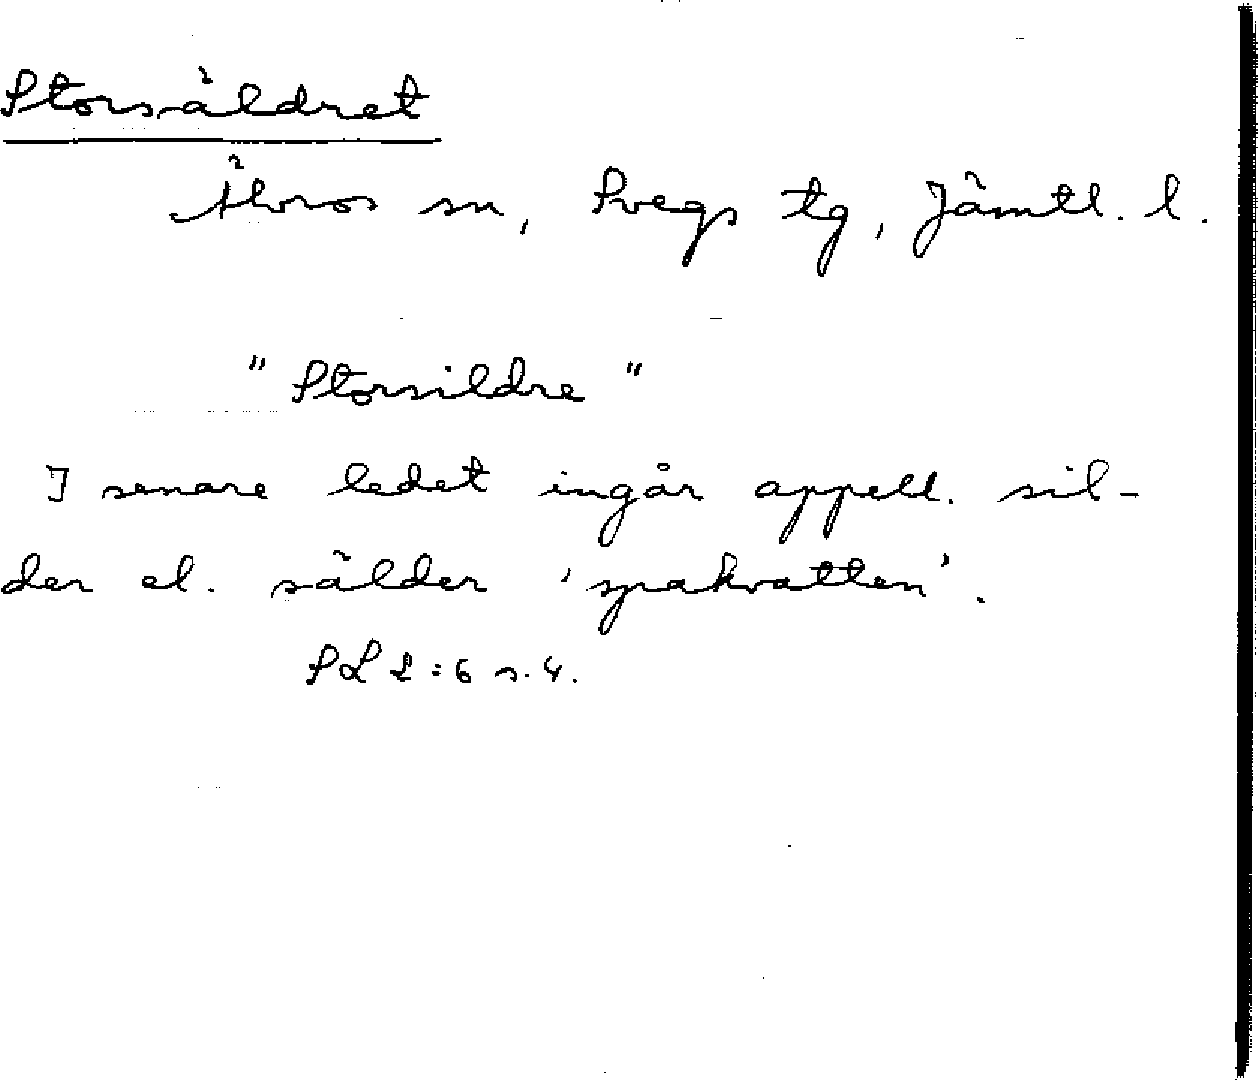 Storsäldret
Älvros sn, Svegs tg, Jämtl. l.
"Storsildre"
I senare ledet ingår appell. sil-
der el. sälder 'spakvatten'.
SL 2:6 s. 4.